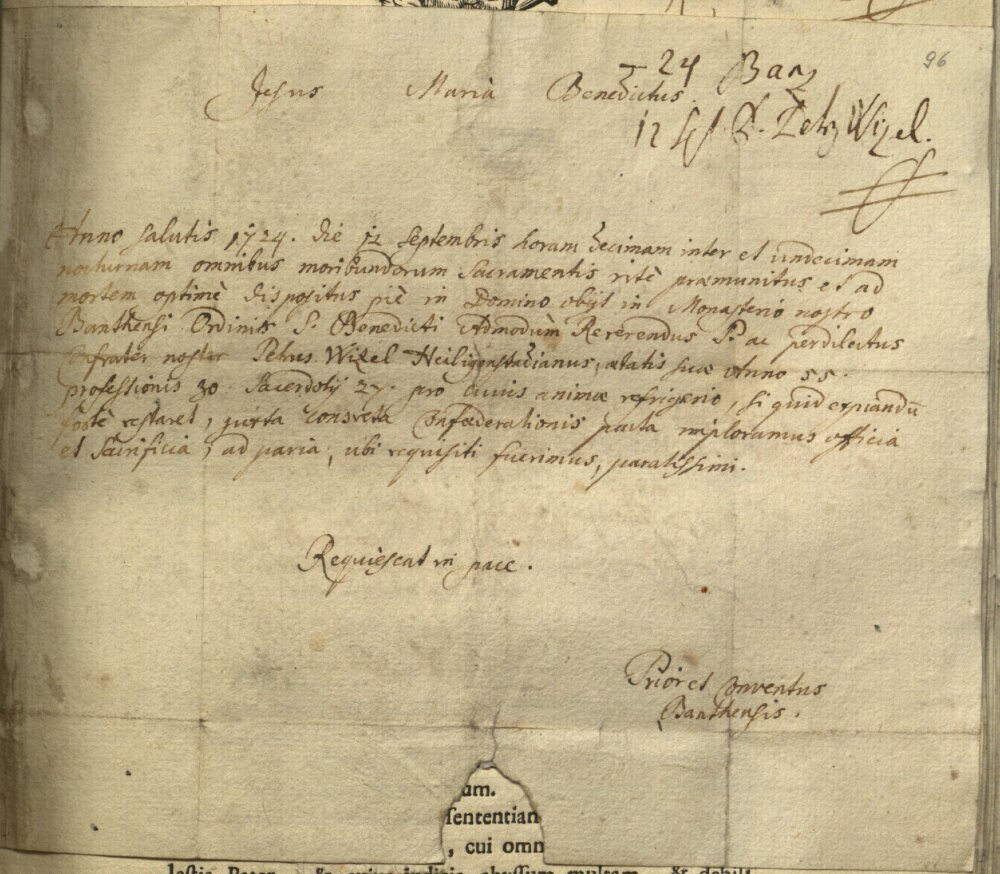 96
24 Banz
Jesus Maria Benedictus.
12 P. Petrg Wizel.
Anno salutis 1724. die 12 septembris horam decimam inter et undecimam
nocturnam omnibus moribundorum Sacramentis ritè præmunitus, et ad
mortem optimè dispositus piè in Domino obijt in Monasterio nostro
Banthensi Ordinis S. Benedicti Admodùm Reverendus P. ac perdilectus
Confrater noster Petrus Wizel Heiligenstadianus, ætatis suæ Anno 55.
professionis 30 Sacerdotij 27. pro cuius animæ refrigerio, si quid expiandũ
fortè restaret, juxta consveta Confœderationis pacta imploramus officia
et Sacrificia, ad paria, ubi requisiti fuerimus, paratissimi.
Requiescat in pace.
Prior et Conventus
Banthensis.
um.
sententian
, cui omn